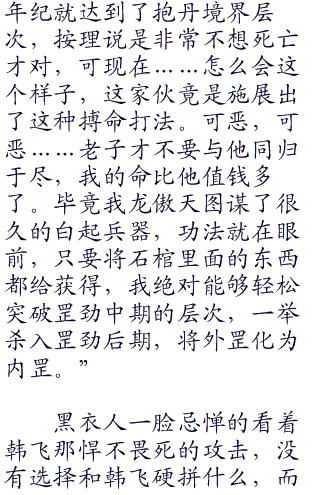 年纪就达到了抱丹境界层
次，按理说是非常不想死亡
才对，可现在……怎么会这
个样子，这家伙竟是施展出
了这种搏命打法。可恶，可
恶……老子才不要与他同归
于尽，我的命比他值钱多
了。毕竟我龙傲天图谋了很
久的白起兵器，功法就在眼
前，只要将石棺里面的东西
都给获得，我绝对能够轻松
突破罡劲中期的层次，一举
杀入罡劲后期，将外罡化为
内罡。”
黑衣人一脸忌惮的看着
韩飞那悍不畏死的攻击，没
有选择和韩飞硬拼什么，而